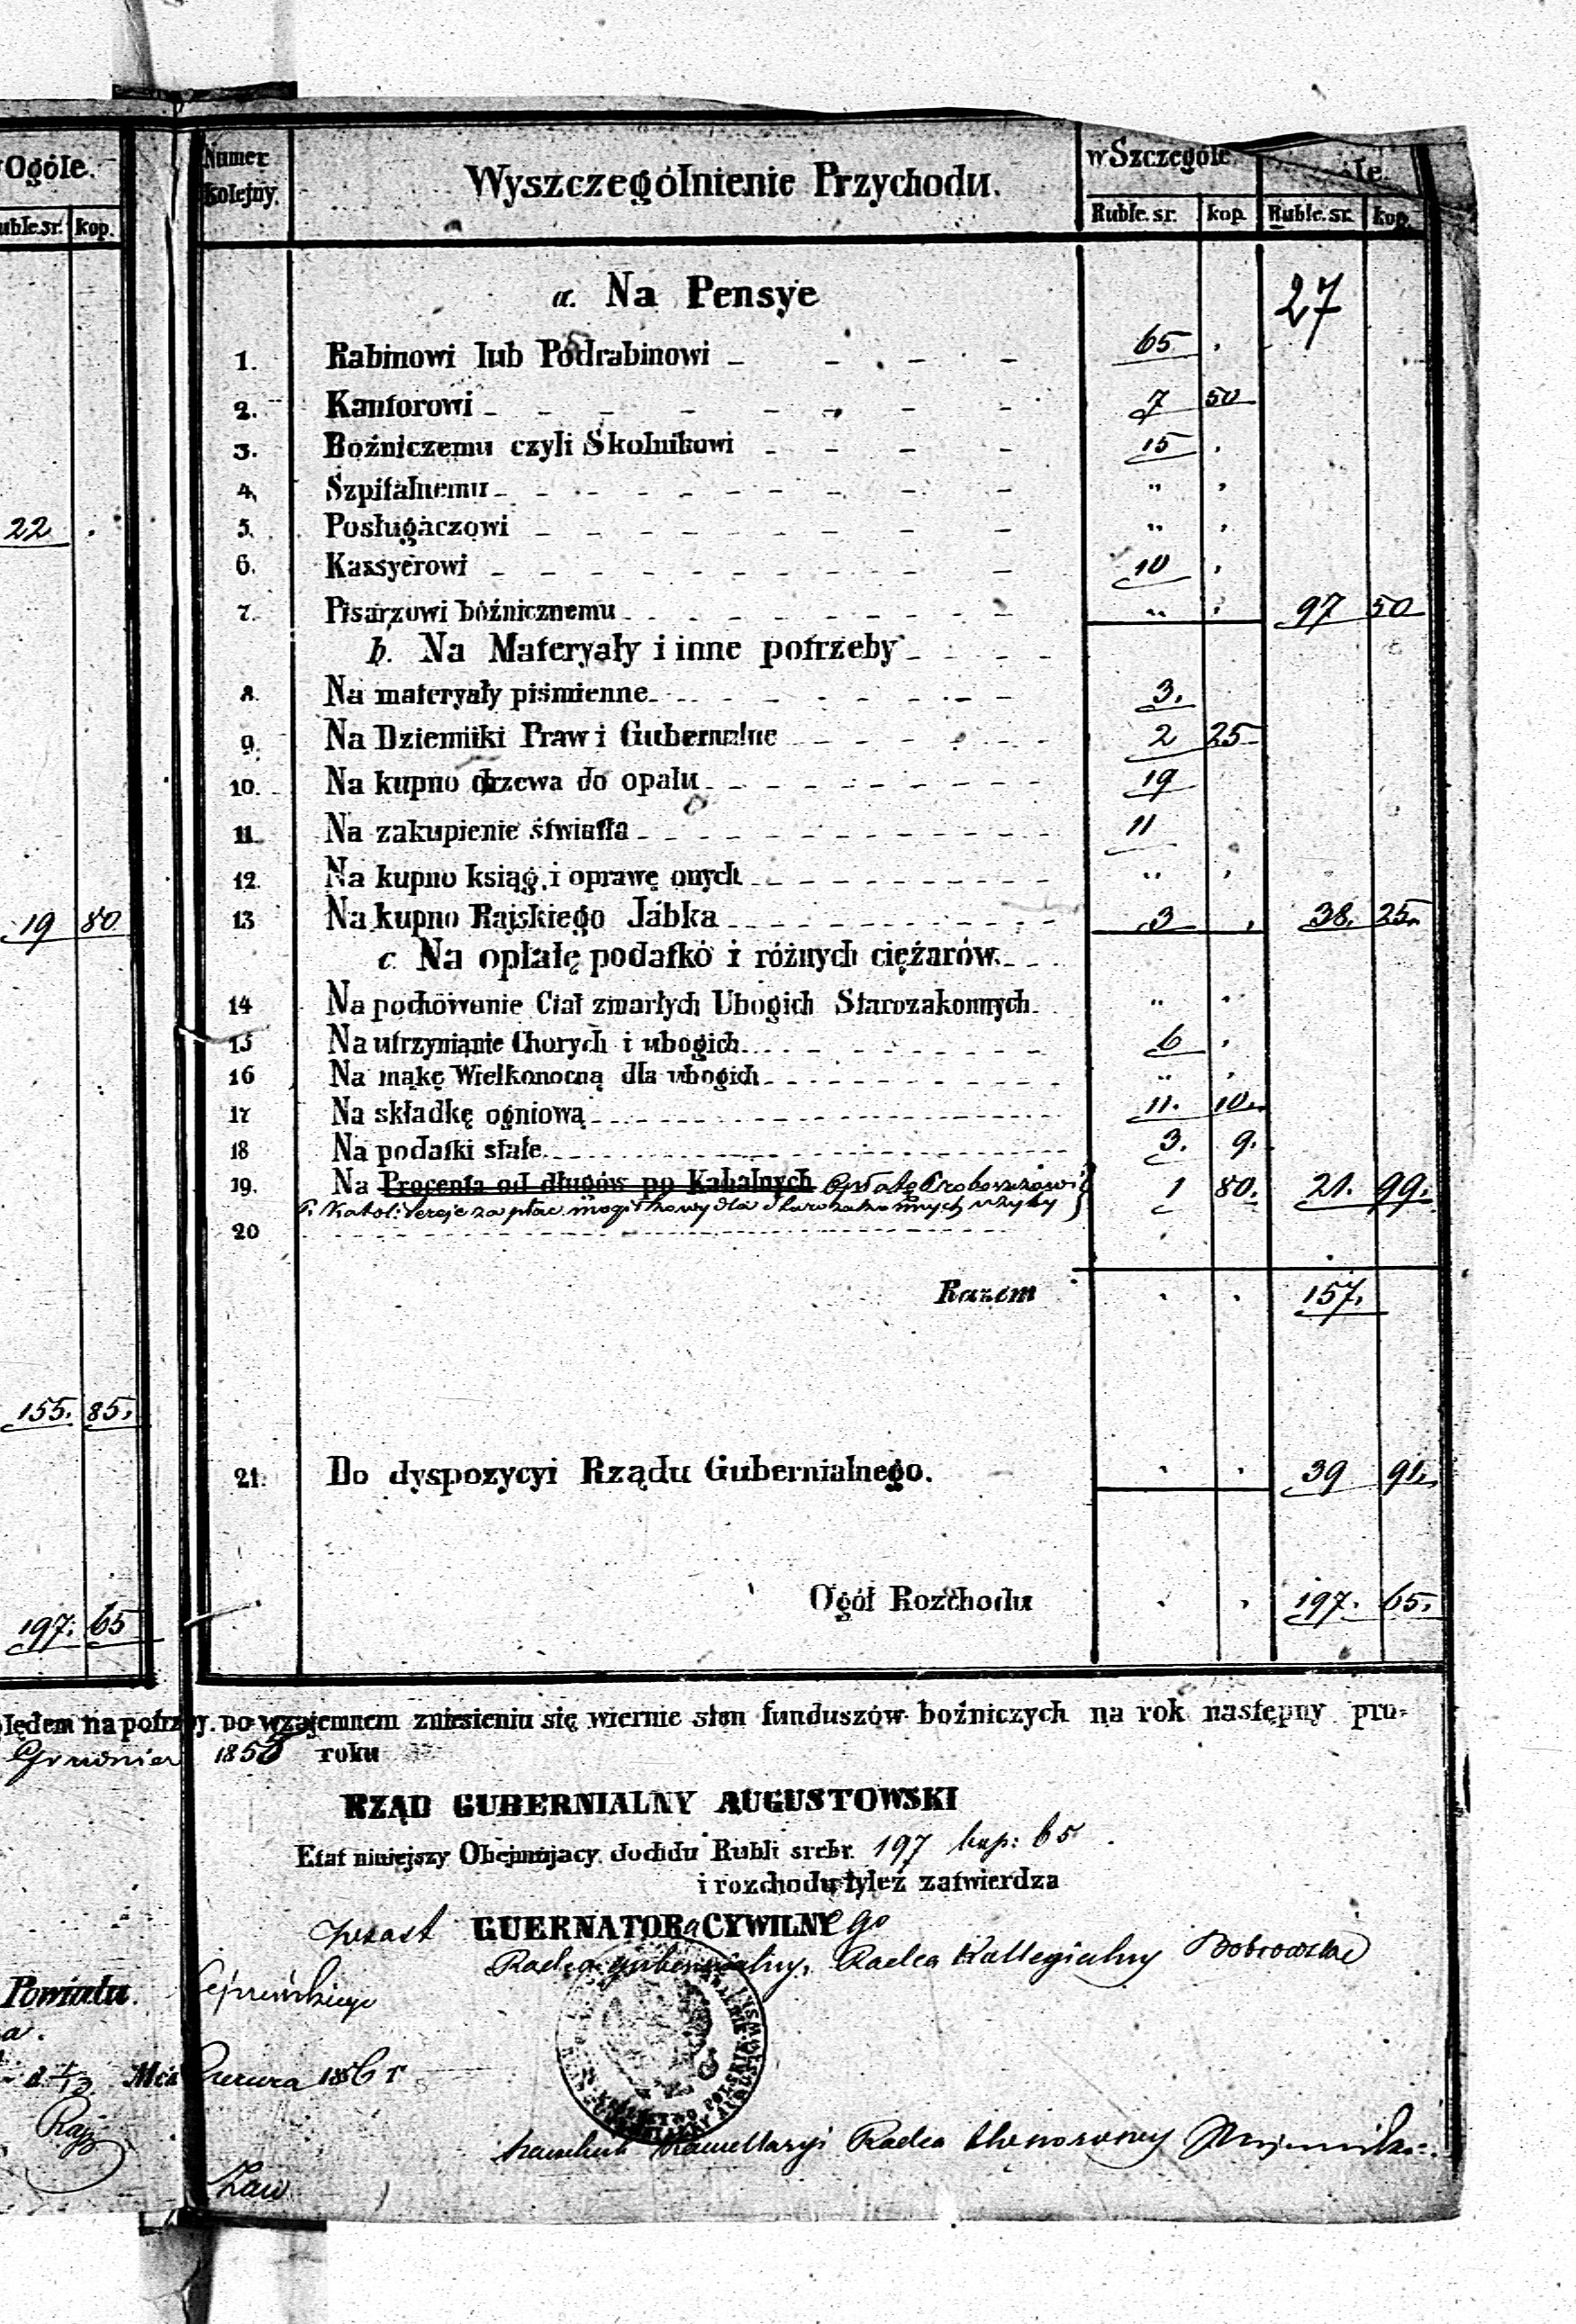 Ogóle.
Ruble.sr. kop.
22
19 80
155. 85.
197. 65
Numer kolejny. Wyszczególnienie Przychodu. w Szczególe
Ruble. sr. kop. Ruble. sr. kop.
a. Na Pensye 27
1. Rabinowi lub Podrabinowi 65
2. Kantorowi 7 50
3. Boźniczemu czyli Skolnikowi 15
4. Szpitalnemu " "
5. Posługaczowi " "
6. Kassyerowi 10
7. Pisarzowi bóźnicznemu " " 97 50
b. Na Materyały i inne potrzeby
8. Na materyały piśmienne 3.
9. Na Dzienniki Praw i Gubernalne 2 25
10. Na kupno drzewa do opału 19
11. Na zakupienie świafła 11
12. Na kupno ksiąg i oprawę onych " "
13 Na kupno Rajskiego Jabka 3 38. 25.
c. Na opłatę podatkó i różnych ciężarów.
14 Na pochowanie Ciał zmarłych Ubogich Starozakonnych " "
15 Na utrzymianie Chorych i ubogich 6
16 Na mąkę Wielkonocną dla ubogich " "
17 Na składkę ogniową 11. 10.
18 Na podatki stałe 3. 9.
19. Na Procenta od długów po Kahalnych Opłatę Proboszczowi 1 80. 21. 99.
za plac mogiłkowy dla Starozakonnych użyty
20
Razem 157.
21. Do dyspozycyi Rządu Gubernialnego. 39 91.
Ogół Rozchodu 197. 65.
lędem na potrzeby po wzajemnem zniesieniu się wiernie stan funduszów boźniczych na rok następny pro-
Grudnia 1856 roku
RZĄD GUBERNIALNY AUGUSTOWSKI
Etat niniejszy Obejmujacy dochdu Rubli srebr. 197 kop: 65
i rozchodu tyleż zatwierdza
w zast GUERNATORa CYWILNYego
Radca gubernialny, Radca Kollegialny Dobrowolski
Powiatu.
Mca 1856 r
Naczelnik Kancellaryi Radca Honorowy